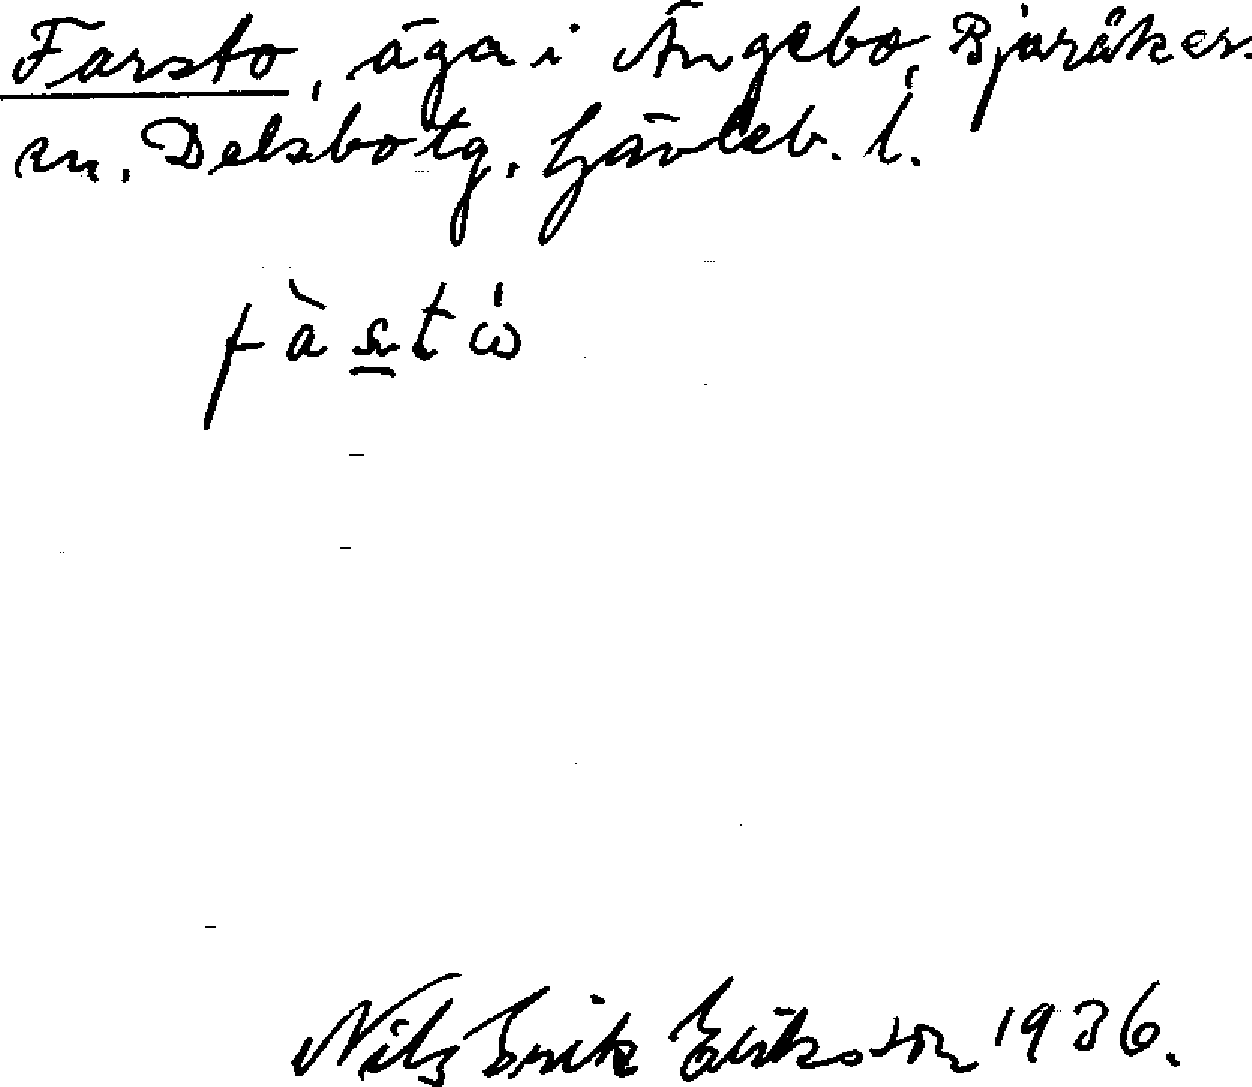 Farsto, äga i Ängebo, Bjuråkers
sn, Delsbo tg. Gävleb. l.
fàs̲tω̍
Nils Erik Eriksson 1936.